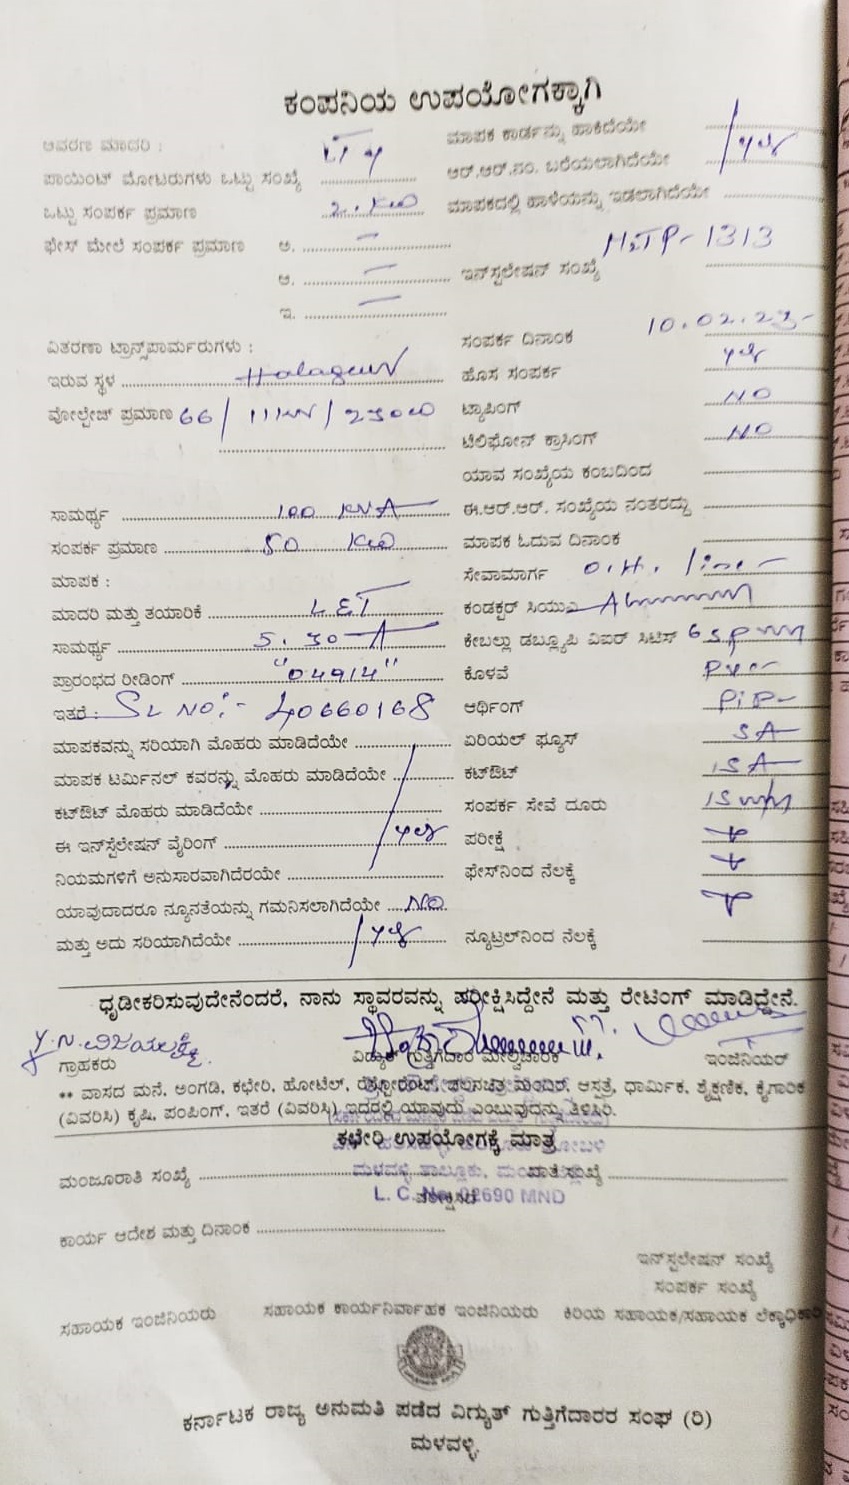 ಕಂಪನಿಯ ಉಪಯೋಗಕ್ಕಾಗಿ
ಆವರಣ ಮಾದರಿ : ಮಾಪಕ ಕಾರ್ಡನ್ನು ಹಾಕಿದೆಯೇ
ಪಾಯಿಂಟ್ ಮೋಟರುಗಳು ಒಟ್ಟು ಸಂಖ್ಯೆ ಆರ್.ಆರ್.ನಂ. ಬರೆಯಲಾಗಿದೆಯೇ yes
ಒಟ್ಟು ಸಂಪರ್ಕ ಪ್ರಮಾಣ 2. KW ಮಾಪಕದಲ್ಲಿ ಹಾಳೆಯನ್ನು ಇಡಲಾಗಿದೆಯೇ
ಫೇಸ್ ಮೇಲೆ ಸಂಪರ್ಕ ಪ್ರಮಾಣ ಅ. –
ಆ. – ಇನ್‌ಸ್ಟಲೇಷನ್ ಸಂಖ್ಯೆ -1313
ಇ. –
ವಿತರಣಾ ಟ್ರಾನ್ಸ್‌ಪಾರ್ಮರುಗಳು : ಸಂಪರ್ಕ ದಿನಾಂಕ 10.02.23-
ಇರುವ ಸ್ಥಳ Halagur ಹೊಸ ಸಂಪರ್ಕ yes
ವೋಲ್ಟೇಜ್ ಪ್ರಮಾಣ 66/11KV/ ಟ್ಯಾಪಿಂಗ್ NO
ಟೆಲಿಫೋನ್ ಕ್ರಾಸಿಂಗ್ NO
ಯಾವ ಸಂಖ್ಯೆಯ ಕಂಬದಿಂದ
ಸಾಮರ್ಥ್ಯ 100 KVA ಈ.ಆರ್.ಆರ್. ಸಂಖ್ಯೆಯ ನಂತರದ್ದು
ಸಂಪರ್ಕ ಪ್ರಮಾಣ 80 KW ಮಾಪಕ ಓದುವ ದಿನಾಂಕ
ಮಾಪಕ : ಸೇವಾಮಾರ್ಗ O.H. line
ಮಾದರಿ ಮತ್ತು ತಯಾರಿಕೆ L&T ಕಂಡಕ್ಟರ್ ಸಿಯುಎ
ಸಾಮರ್ಥ್ಯ 5.30 A ಕೇಬಲ್ಲು ಡಬ್ಲ್ಯೂಪಿ ವಿಐರ್ ಸಿಟಿಸ್
ಪ್ರಾರಂಭದ ರೀಡಿಂಗ್ "04914" ಕೊಳವೆ PVC
ಇತರೆ : SL NO:- 40660168 ಆರ್ಥಿಂಗ್ PiP
ಮಾಪಕವನ್ನು ಸರಿಯಾಗಿ ಮೊಹರು ಮಾಡಿದೆಯೇ ಏರಿಯಲ್ ಫ್ಯೂಸ್
ಮಾಪಕ ಟರ್ಮಿನಲ್ ಕವರನ್ನು ಮೊಹರು ಮಾಡಿದೆಯೇ ಕಟ್‌ಔಟ್ 15 A
ಕಟ್‌ಔಟ್ ಮೊಹರು ಮಾಡಿದೆಯೇ ಸಂಪರ್ಕ ಸೇವೆ ದೂರು
ಈ ಇನ್‌ಸ್ಟೆಲೇಷನ್ ವೈರಿಂಗ್ yes ಪರೀಕ್ಷೆ
ನಿಯಮಗಳಿಗೆ ಅನುಸಾರವಾಗಿದೆರಯೇ ಫೇಸ್‌ನಿಂದ ನೆಲಕ್ಕೆ
ಯಾವುದಾದರೂ ನ್ಯೂನತೆಯನ್ನು ಗಮನಿಸಲಾಗಿದೆಯೇ NO
ಮತ್ತು ಅದು ಸರಿಯಾಗಿದೆಯೇ yes ನ್ಯೂಟ್ರಲ್‌ನಿಂದ ನೆಲಕ್ಕೆ
ಧೃಡೀಕರಿಸುವುದೇನೆಂದರೆ, ನಾನು ಸ್ಥಾವರವನ್ನು ಪರೀಕ್ಷಿಸಿದ್ದೇನೆ ಮತ್ತು ರೇಟಿಂಗ್ ಮಾಡಿದ್ದೇನೆ.
Y.N.ವಿಜಯಲಕ್ಷ್ಮಿ
ಗ್ರಾಹಕರು ವಿದ್ಯುತ್ ಗುತ್ತಿಗೆದಾರ ಮೇಲ್ವಿಚಾರಕ ಇಂಜಿನಿಯರ್
** ವಾಸದ ಮನೆ, ಅಂಗಡಿ, ಕಛೇರಿ, ಹೋಟೆಲ್, ರೆಸ್ಟೋರೆಂಟ್, ಚಲನಚಿತ್ರ ಮಂದಿರ, ಆಸ್ಪತ್ರೆ, ಧಾರ್ಮಿಕ, ಶೈಕ್ಷಣಿಕ, ಕೈಗಾರಿಕ
(ವಿವರಿಸಿ) ಕೃಷಿ, ಪಂಪಿಂಗ್, ಇತರೆ (ವಿವರಿಸಿ) ಇದರಲ್ಲಿ ಯಾವುದು ಎಂಬುವುದನ್ನು ತಿಳಿಸಿರಿ.
ಕಛೇರಿ ಉಪಯೋಗಕ್ಕೆ ಮಾತ್ರ
ಮಂಜೂರಾತಿ ಸಂಖ್ಯೆ ಮಳವಳ್ಳಿ ತಾಲ್ಲೂಕು, ಖಾತೆ ಸಂಖ್ಯೆ
L. C. No. 02690 MND
ಕಾರ್ಯ ಆದೇಶ ಮತ್ತು ದಿನಾಂಕ
ಇನ್‌ಸ್ಟಲೇಷನ್ ಸಂಖ್ಯೆ
ಸಂಪರ್ಕ ಸಂಖ್ಯೆ
ಸಹಾಯಕ ಇಂಜಿನಿಯರು ಸಹಾಯಕ ಕಾರ್ಯನಿರ್ವಾಹಕ ಇಂಜಿನಿಯರು ಕಿರಿಯ ಸಹಾಯಕ/ಸಹಾಯಕ ಲೆಕ್ಕಾಧಿಕಾರಿ
ಕರ್ನಾಟಕ ರಾಜ್ಯ ಅನುಮತಿ ಪಡೆದ ವಿದ್ಯುತ್ ಗುತ್ತಿಗೆದಾರರ ಸಂಘ (ರಿ)
ಮಳವಳ್ಳಿ